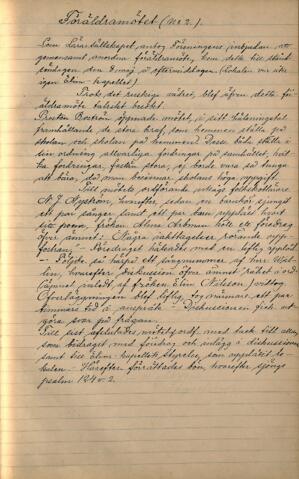 Föräldramötet (No 2.).
Som Lärarsällskapet, antog Föreningens inbjudan att
gemensamt anordna föräldramöte, kom detta till stånd
söndagen den 8 maj å eftermiddagen. (Lokalen var åter-
igen Elim-kapellet.)
Trots det ruskiga vädret, blef äfven detta för-
äldramöte talrikt besökt.
Pastor Boström öppnade mötet, i sitt hälsningstal
framhållande de stora kraf, som hemmen ställa på
skolan och skolan på hemmen. Dessa båda ställa i
sin ordning allvarliga fordringar på samhället, hvil-
ka fordringar, fastän stora, ej borde vara så tunga
att bära, då man besinnar skolans höga uppgift.
Till mötets ordförande valdes folkskollärare
N. J. Nyström, hvarefter sedan en barnkör sjungit
ett par sånger samt ett par barn uppläst hvart
sitt poem, fröken Alma Arbman höll ett föredrag
öfver ämnet: "Några iakttagelser rörande upp-
fostran." Föredraget hälsades med en liflig applåd.
Följde så härpå ett sångnummer af herr
hvarefter diskussion öfver ämnet
inledt af fröken Elin Nilsson) vidtog.
Öfverläggningen blef liflig, tog närmare ett par
timmars tid i anspråk. Diskussionen fick ut-
göra svar på frågan.
Till sist afslutades mötet af ordf. med tack till alla,
som bidragit med föredrag och inlägg i diskussionen
samt till Elim-kapellets styrelse, som upplåtit lo-
kalen. Härefter förrättades bön, hvarefter sjöngs
psalm 124 v. 2.